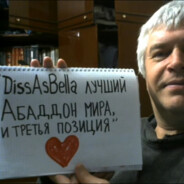 DissAsBella лучший
Абаддон мира,
и третья позиция"